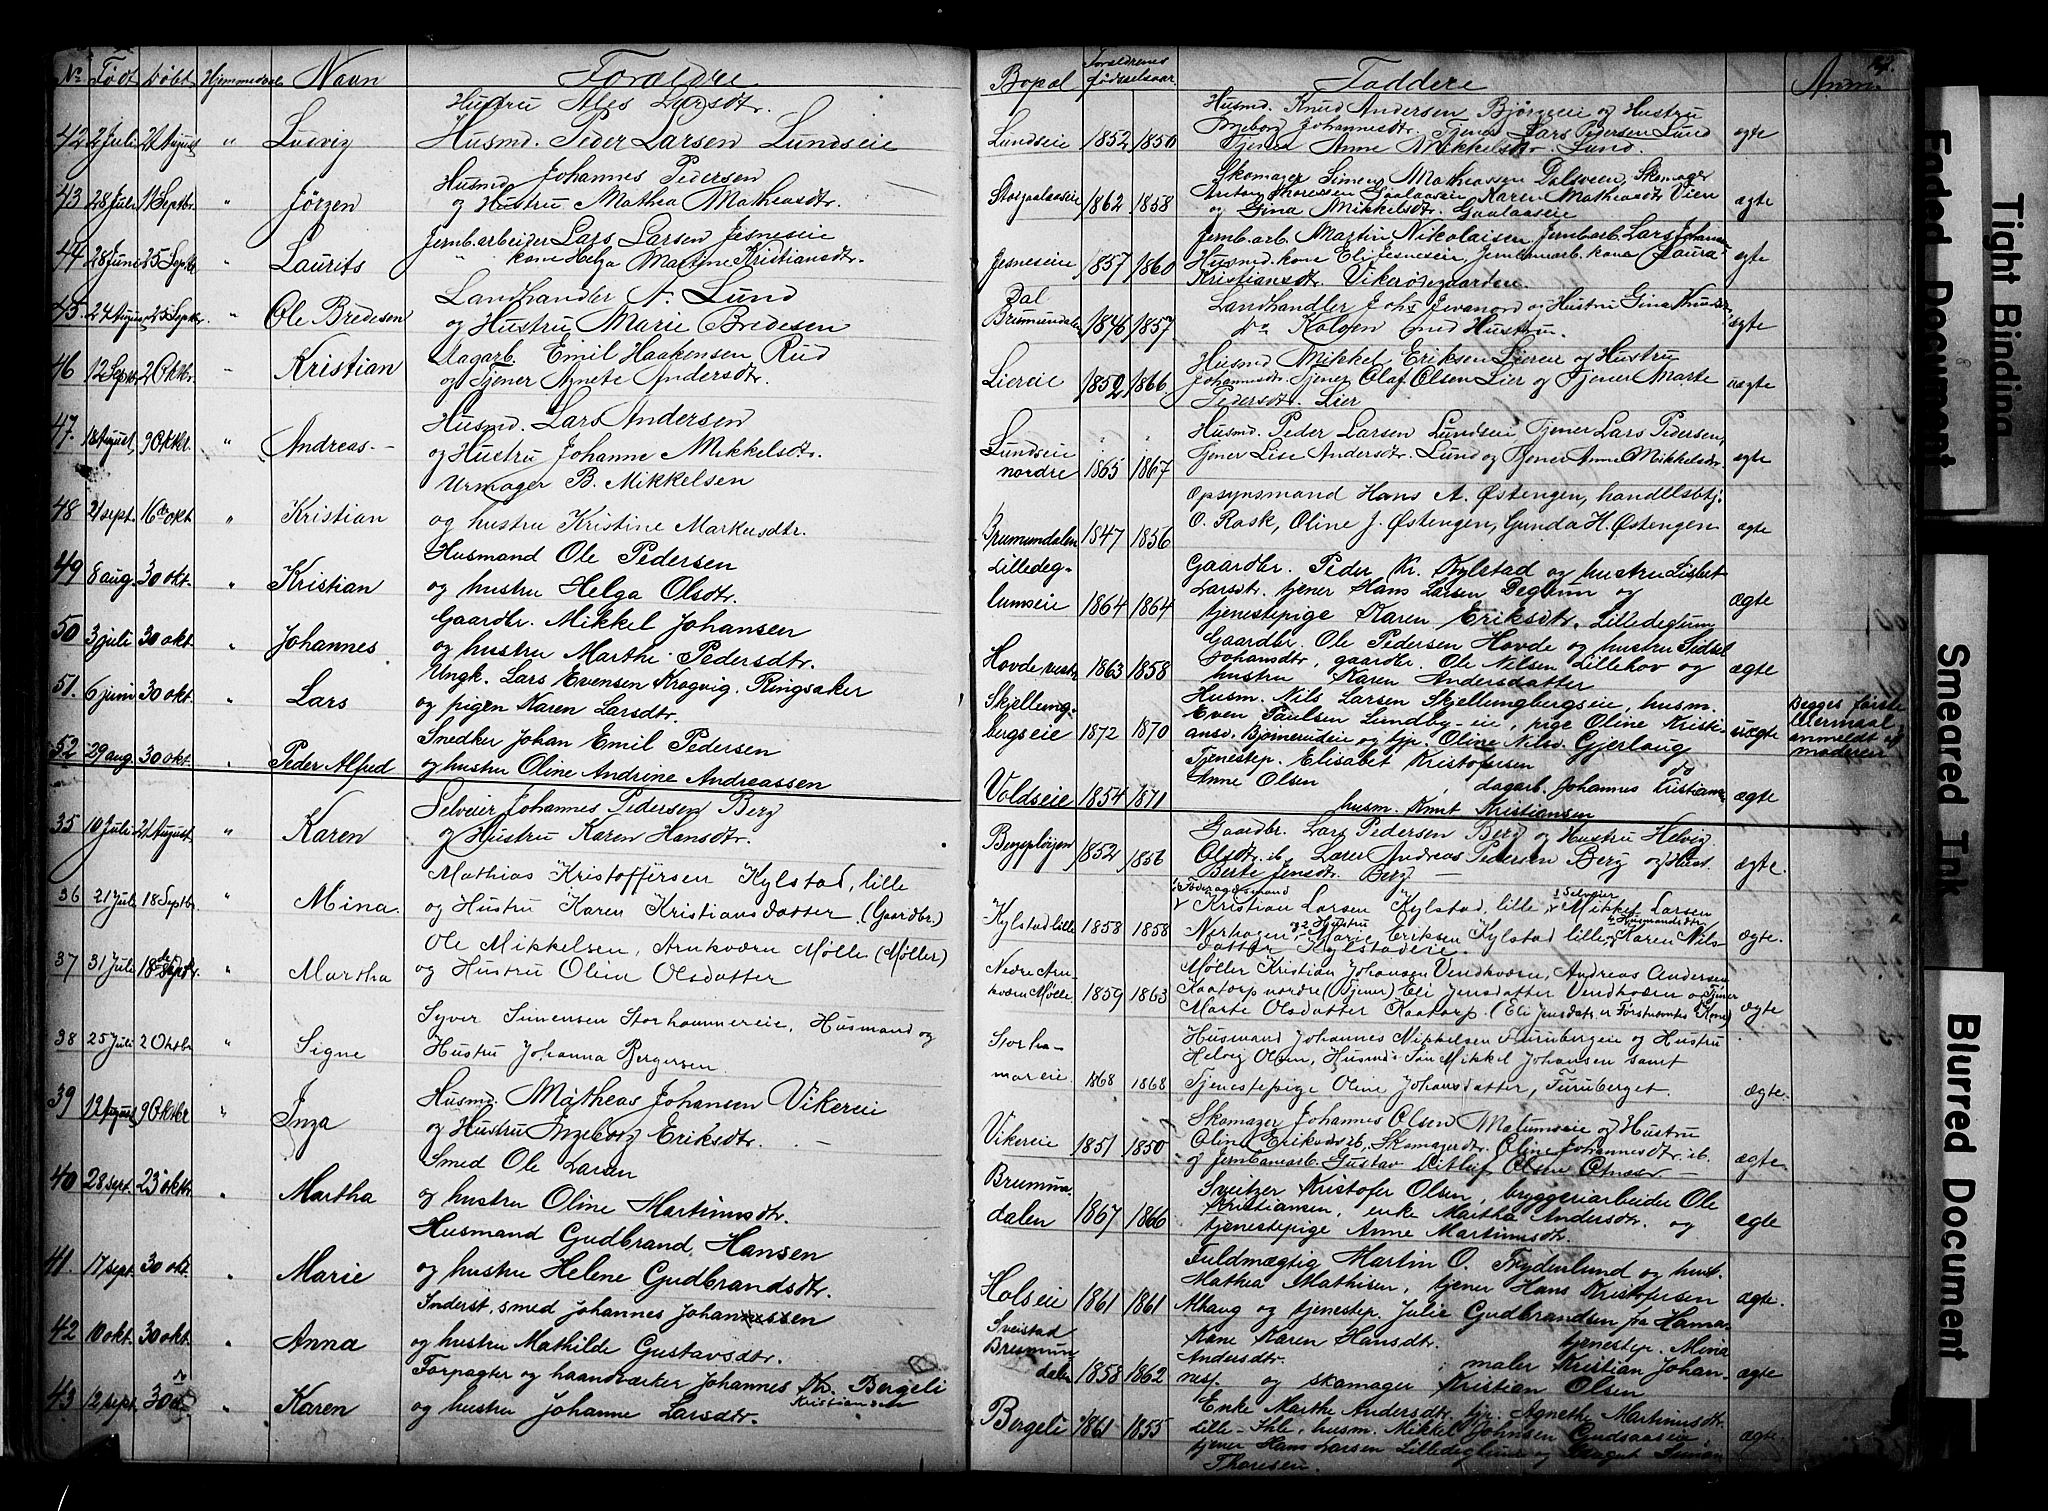 No. Født Døbt Hjemmedøbt Navn Forældre
Hustru Ales Larsdtr.
42 2 Juli 21 August " Ludvig Husmd. Peder Larsen Lundseie
43 28 Juli 11 Septbr. " Jörgen Husmd. Johannes Pedersen
og Hustru Mathea Matheasdtr.
44 28 June 25 Septbr. " Laurits Jernb.arbeider Lars Larsen Jesneseie
" kone Helga Martine Kristiansdtr.
45. 24 August 25 Septbr. " Ole Bredesen Landhandler A. Lund
og Hustru Marie Bredesen
46 12 Septbr. 2 Oktbr. " Kristian Dagarb. Emil Haakensen Rud
og Tjener Agnete Andersdtr.
47. 18 August 9 Oktbr. " Andreas Husmd. Lars Andersen
og Hustru Johanne Mikkelsdtr.
48 21 sept. 16de okt " Kristian Urmager B. Mikkelsen
og hustru Kristine Markusdtr.
49 8 aug. 30 okt. " Kristian Husmand Ole Pedersen
og hustru Helga Olsdtr.
50 3 juli 30 okt. " Johannes Gaardbr. Mikkel Johansen
og hustru Marthe Pedersdtr.
51. 6 juni 30 okt. " Lars Ungk. Lars Evensen Kragvig. Ringsaker
og pigen Karen Larsdtr.
52 29 aug. 30 okt. " Peder Alfred Snedker Johan Emil Pedersen
og hustru Oline Andrine Andreassen
35 10 Juli 21 August " Karen Selveier Johannes Pedersen Berg
og Hustru Karen Hansdtr.
36 21 Juli 18 Septbr. " Mina. Mathias Kristoffersen Kylstad, lille
og Hustru Karen Kristiansdatter (Gaardbr.)
37 31 Juli 18de Septbr. " Martha Ole Mikkelsen, Arnkværn Mølle (Møller)
og Hustru Oline Olsdatter
38 25 Juli 2 Oktbr " Signe Syver Simensen Storhammereie, Husmand og
Hustru Johanna Bergersen.
39 12 August 9 Oktbr " Inga Husmd. Matheas Johansen Vikereie
og Hustru Ingeborg Eriksdtr.
40 28 sept. 23 oktbr " Martha Smed Ole Larsen
og hustru Oline Martinusdtr.
41. 17 sept. 30 okt. " Marie Husmand Gudbrand Hansen
og hustru Helene Gudbrandsdtr.
42 10 okt. 30 okt. " Anna Inderst, smed Johannes Johannessen
og hustru Mathilde Gustavsdtr.
43 12 sept. 30 " Karen Forpagter og haandværker Johannes Kr. Bergeli
Kristiansen
og hustru Johanne Larsdtr.
Bopæl Forældrenes fødselsaar Faddere Anm.
Husmd. Knud Andersen Bjørgeeie og Hustru
Lundseie 1852 1850 Ingeborg Johannesdtr. Tjener Lars Pedersen Lund
Tjener Anne Mikkelsdtr. Lund. ægte
Skomager Simen Matheassen Dalsveen, Skomager
Storgaalaaseie 1862 1858 Anton Thoressen Gaalaaseie Karen Matheasdtr Vien
og Gina Mikkelsdtr. Gaalaaseie ægte
Jernb.arb. Martin Nikolaisen Jernb.arb. Lars
Jesneseie 1857 1860 Husmd. kone Eli Jesneseie, Jernbanearb. kone Laura
Kristiansdtr. Vikerødegaarden. ægte
Dal
Brumundalen 1846 1857 Landhandler Johs Jevanord og Hustru Gina
do Kolgen med Hustru. ægte
Husmd. Mikkel Eriksen Liereie og Hustru
Liereie 1852 1866 Johannesdtr. Tjener Olaf Olsen Lier og Tjener Marte
Pedersdtr. Lier uægte
Husmd. Peder Larsen Lundseie, Tjener Lars Pedersen,
Lundseie
nordre 1865 1867 Tjener Lise Andersdtr. Lund og Tjener Anne Mikkelsdtr. ægte
Opsynsmand Hans A. Østengen, handelsbtj.
Brumundalen 1847 1856 O. Rask, Oline J. Østengen, Gunda H. Østengen ægte
Lilledeg-
lumseie 1864 1864 Gaardbr. Peder Kr. Kylstad og hustru Lisbet
Larsdtr. tjener Hans Larsen Deglum og
tjenestepige Karen Eriksdtr. Lilledeglum ægte
Hovde vestr. 1863 1858 Gaardbr. Ole Pedersen Hovde og hustru Sidsel
Johansdtr, gaardbr. Ole Nilsen Lillehov og
hustru Karen Andersdatter ægte
Skjellung-
bergseie 1872 1870 Husm. Nils Larsen Skjellungbergseie, husm.
Even Paulsen Lundby-eie, pige Oline Kristi-
ansd. Bjørnerudeie og tjp. Oline Nilsd. Gjerlaug uægte Begges første
leiermaal
anmeldt af
moderen
Voldseie 1854 1871 Tjenestep. Elisabet Kristofersen do
Anne Olsen, dagarb. Johannes Kristians.
husm. Knut Kristiansen ægte
Bergspløien 1852 1856 Gaardbr. Lars Pedersen Berg og Hustru Helvig
Olsdtr. ib, Lærer Andreas Pedersen Berg og Hust.
Berte Jensdtr. Berg ægte.
Kylstad lille 1858 1858 Kristian Larsen Kylstad, lille, Selveier Mikkel Larsen
Nerhagen, og 2 Hustru Marie Eriksen Kylstad lille, Husmandsdtr Karen Nils-
datter Kylstadeie. ægte.
Nedre Arn-
kværn Mølle 1859 1863 Møller Kristian Johansen Vendkværn, Andreas Andersen
Kaatorp nordre (Tjener) Eli Jensdatter Vendkværn og Tjener
Marte Olsdatter Kaatorp. (Eli Jensdatr. er Førstnævntes Kone) ægte
Storha-
mareie 1868 1868 Husmand Johannes Mikkelsen Furubergeie og Hustru
Helvig Olsen, Husmds Søn Mikkel Johansen samt
Tjenestepige Oline Johansdatter, Furuberget. ægte.
Vikereie 1851 1850 Skomager Johannes Olsen Malumseie og Hustru
Oline Eriksdtr ib, Skomagerdtr. Oline Johannesdtr. ib.
og Jernbanearb. Gustav ægte
Brumun-
dalen 1867 1866 Sveitzer Kristofer Olsen, bryggeriarbeider Ole
Kristiansen, enke Martha Andersdtr. og
tjenestepige Anne Martinusdtr. ægte
Holseie 1861 1861 Fuldmægtig Martin O. Frydenlund og hust.
Mathea Mathisen, tjener Hans Kristofersen
Alhaug og tjenestep. Julie Gudbrandsen fra Hamar ægte.
Sveistad
Brumun-
dalen 1858 1862 Kone Karen Hansdtr. tjenestep. Mina
Andersdtr. maler Kristian Johan-
nes. og skomager Kristian Olsen ægte
Bergeli 1861 1855 Enke Marthe Andersdtr. tjp. Agnethe Martinusdtr.
Lille-Ihle, husm. Mikkel Johnsen Gudsaaseie
tjener Hans Larsen Lilledeglum og Simon
Thoresen. ægte.
Tight Binding
Faded Document
Smeared Ink
Blurred Document